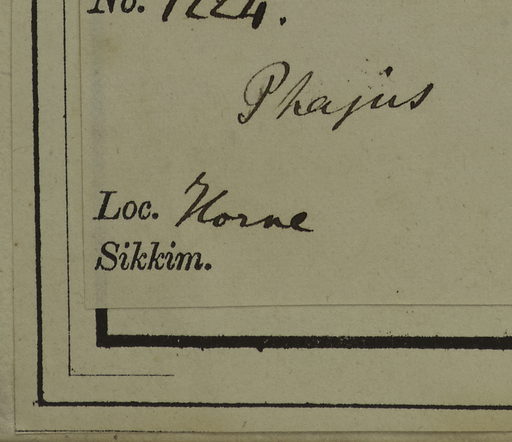 No. 1224.
Phajus
Loc. Horne
Sikkim.